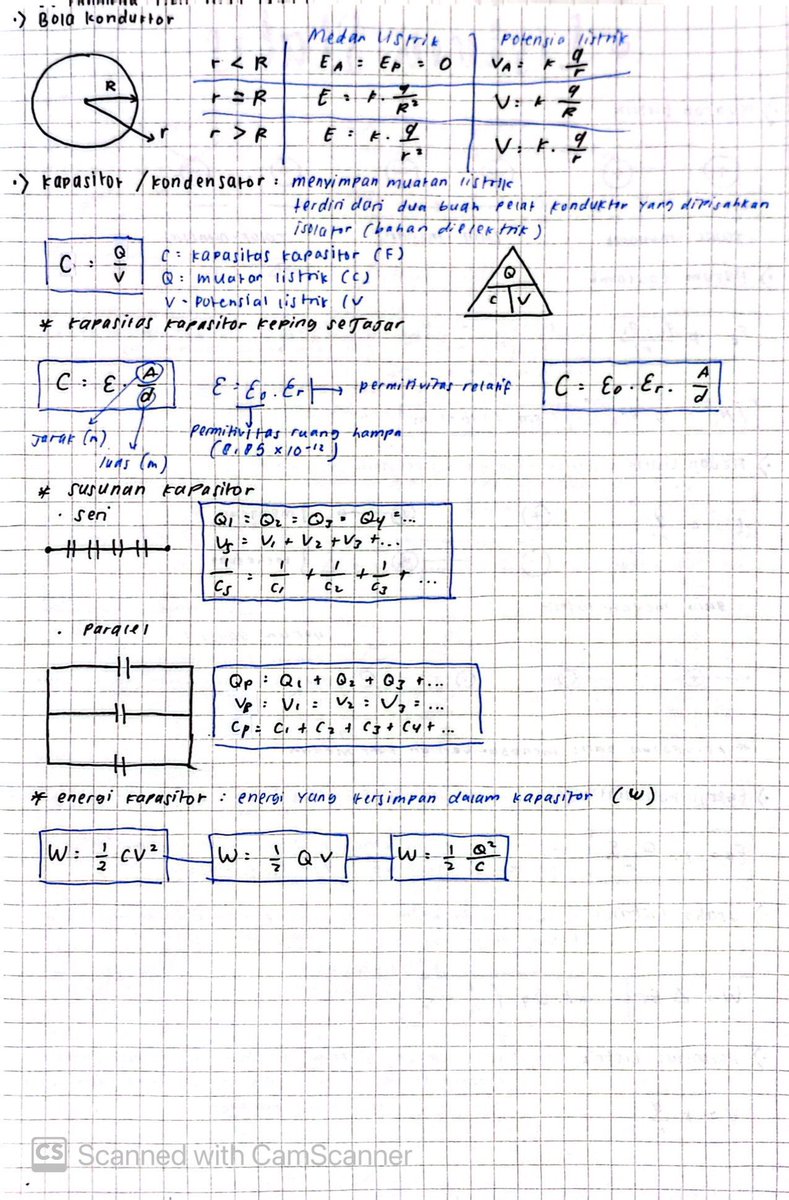 ·) Bola konduktor
Medan Listrik
potensia listrik
r < R
E_A = E_P = 0
V_A = k q/r
r = R
E = k. q/R²
V = k q/R
r > R
E = k. q/r²
V = k. q/r
R
r
·) Kapasitor / kondensator : menyimpan muatan listrik
terdiri dari dua buah pelat konduktor yang dipisahkan
isolator (bahan dielektrik)
C = Q/V
C = kapasitas kapasitor (F)
Q = muatan listrik (C)
V = potensial listrik (V
Q
C V
* kapasitas kapasitor keping sejajar
C = ε · A/d
ε = ε₀ . εr → permitivitas relatif
C = ε₀ . εr . A/d
Jarak (m)
luas (m)
permitivitas ruang hampa
(8,85 × 10⁻¹²)
* susunan kapasitor
· seri
Q1 = Q2 = Q3 = Q4 = ...
Vs = V1 + V2 + V3 + ...
1/Cs = 1/C1 + 1/C2 + 1/C3 + ...
· Paralel
Qp = Q1 + Q2 + Q3 + ...
Vp = V1 = V2 = V3 = ...
Cp = C1 + C2 + C3 + C4 + ...
* energi kapasitor : energi yang tersimpan dalam kapasitor (W)
W = 1/2 CV²
W = 1/2 QV
W = 1/2 Q²/C
CS Scanned with CamScanner